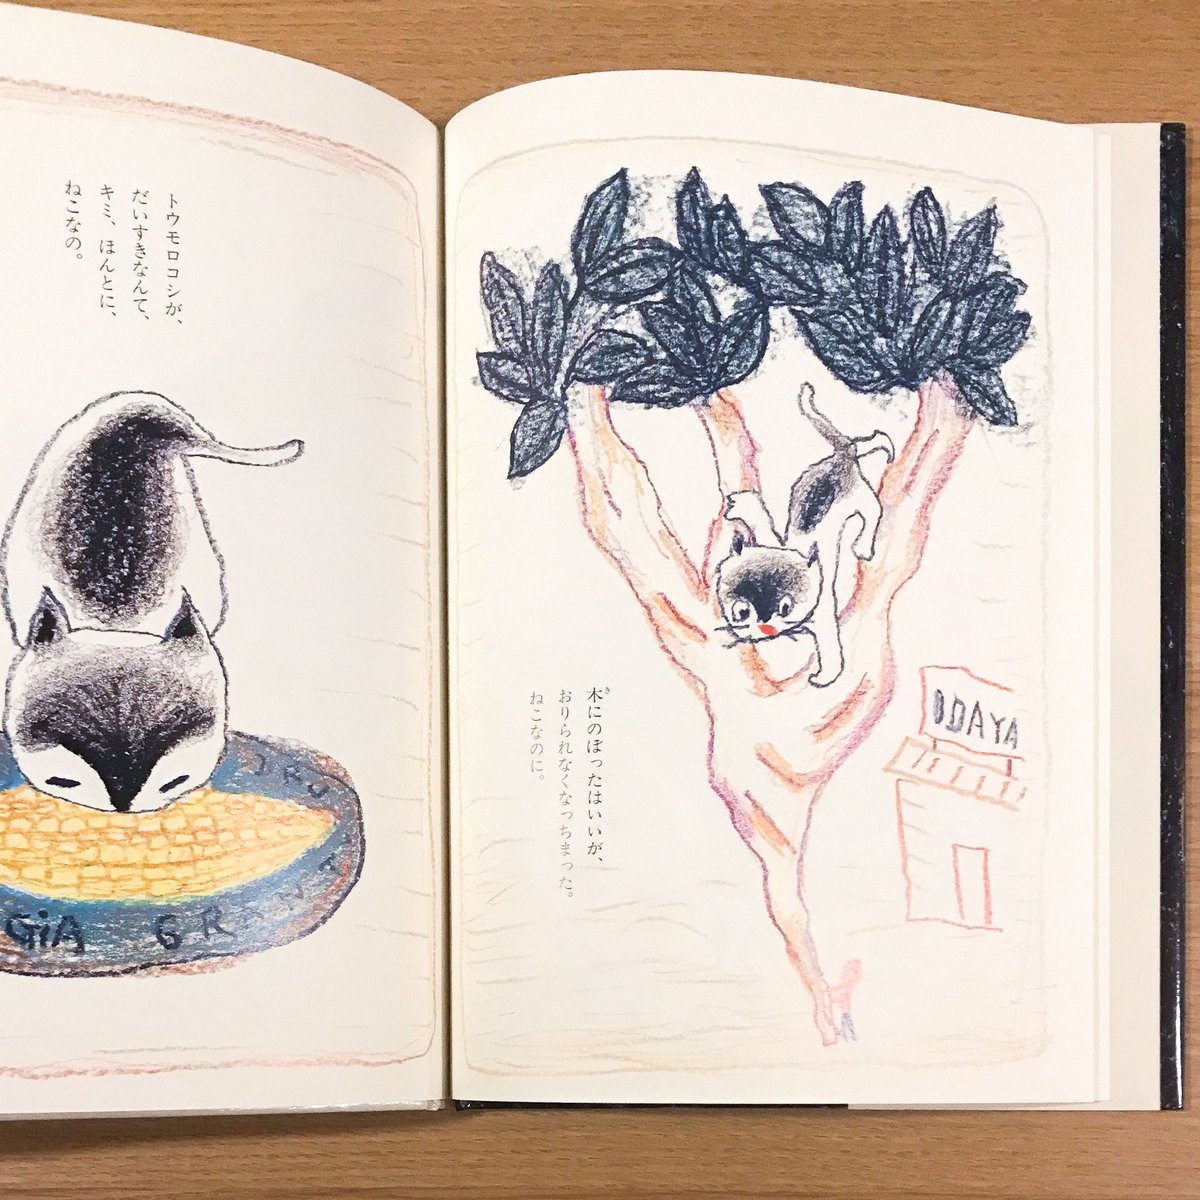 トウモロコシが、
だいすきなんて、
キミ、ほんとに、
ねこなの。
GiA GR
木にのぼったはいいが、
き
おりられなくなっちまった。
ねこなのに。
ODAYA